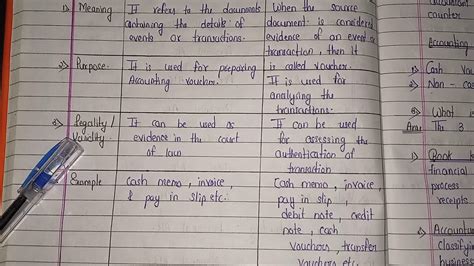 1) Meaning
It refers to the documents
containing the details of
events or transactions.
When the source
document is considered
evidence of an event or
transaction, then it
is called voucher.
2) Purpose
It is used for preparing
Accounting voucher.
It is used for
analysing the
transactions.
3) Legality /
Validity
It can be used as
evidence in the court
of law
It can be used
for assessing the
authentication of
transaction
Example
Cash memo, invoice,
& pay in slip etc.
Cash memo, invoice,
pay in slip,
debit note, credit
note, cash
vouchers, transfer
vouchers etc.
counter
Accounting
1) Cash
2) Non - cas
6) What
Ans
1) Book
financial
process
receipts.
classifying
business